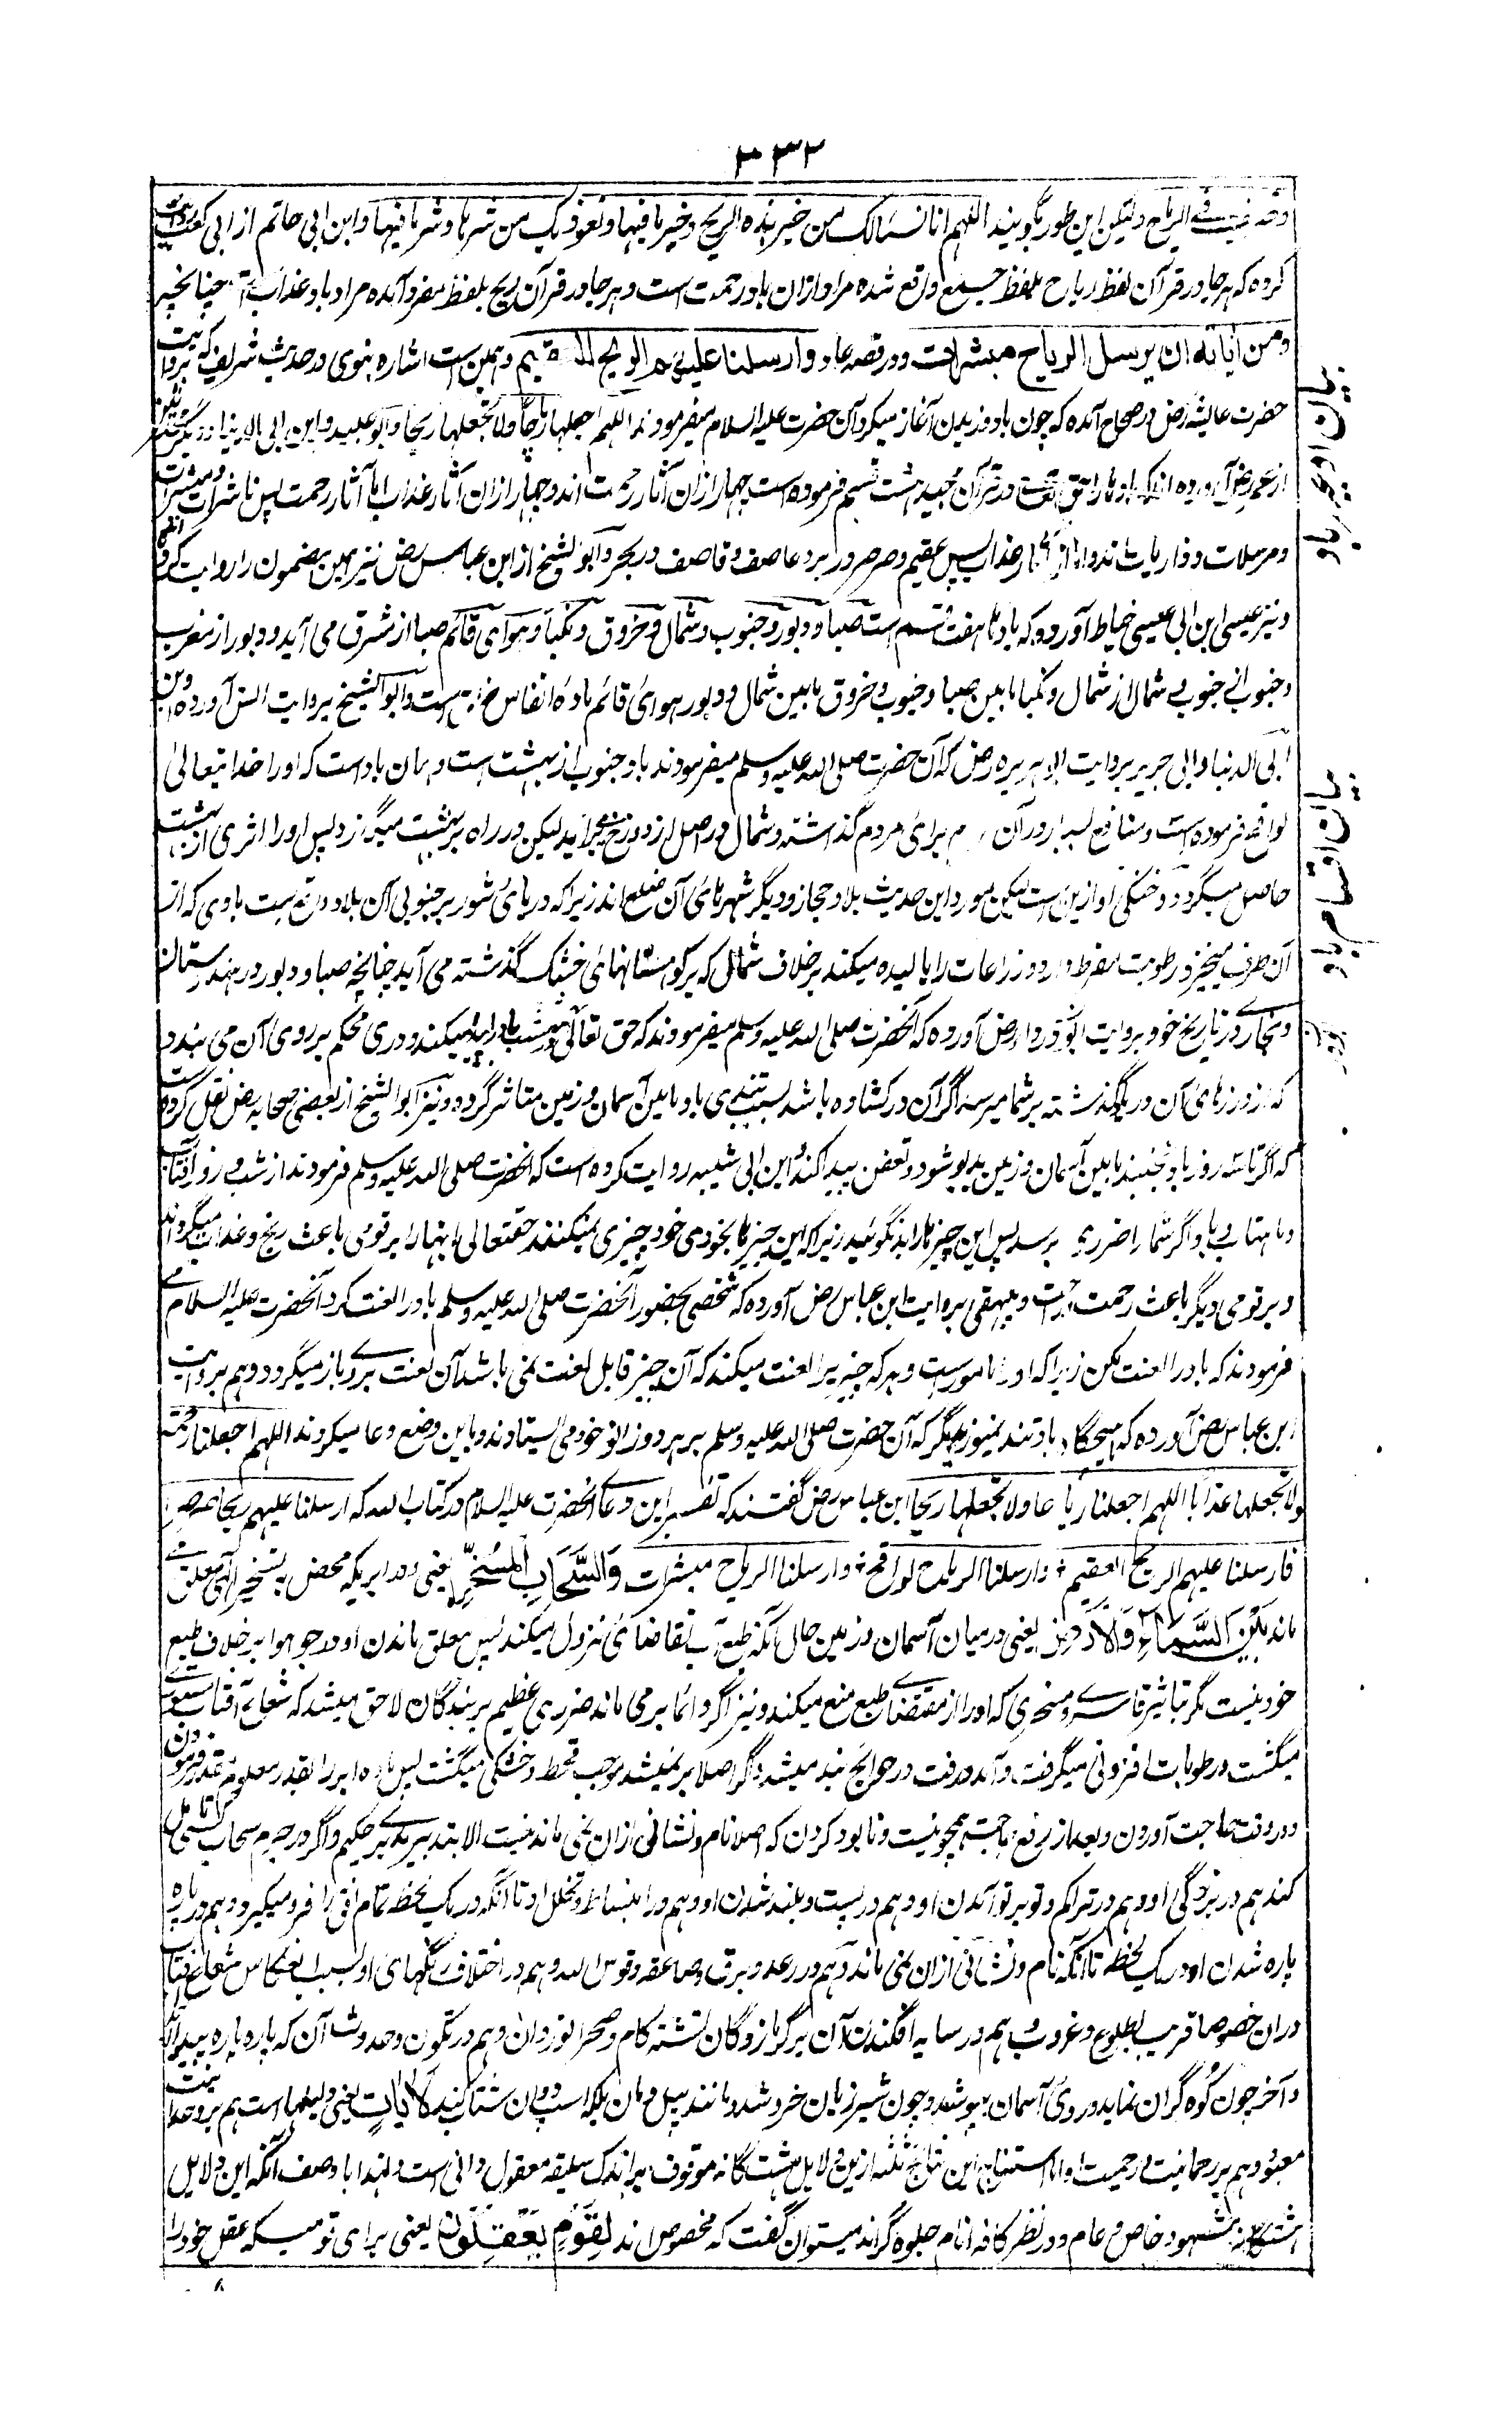 ۳۳۲
وقد ضیفت فی الریاح ولیکن این طور بگویند اللهم انا نسالک من خیر هذه الریح وخیر ما فیها ونعوذ بک من شرها وشر ما فیها وابن ابی حاتم از ابی کعب
کرده که هر جا در قرآن لفظ ریاح بلفظ جمع واقع شده مراد ازان باد رحمت است وهر جا در قرآن ریح بلفظ مفرد آمده مراد باد عذاب است چنانچه
ومن آیاته ان یرسل الریاح مبشرات ودر قصه عاد وارسلنا علیهم الریح العقیم وهمین است اشاره نبوی در حدیث شریف که بروایت
حضرت عایشه رض در صحاح آمده که چون باد وزیدن آغاز میکرد آن حضرت علیه السلام میفرمودند اللهم اجعلها ریاحا ولا تجعلها ریحا وابو عبید وابن ابی الدنیا ودیگر محدثین
از عمر رض آورده اند که باد ها را حق تعالی در قرآن مجید هشت قسم فرموده است چهار ازان آثار رحمت اند وچهار ازان آثار عذاب اما آثار رحمت پس ناشرات ومبشرات
ومرسلات وذاریات اند واما آثار عذاب پس عقیم وصرصر در بر وعاصف وقاصف در بحر وابو الشیخ از ابن عباس رض نیز همین مضمون را روایت کرده
ونیز عیسی ابن ابی عیسی خیاط آورده که باد ها هفت قسم است صبا ودبور وجنوب وشمال وخروق ونکبا وهوای قائم صبا از مشرق می آید ودبور از مغرب
وجنوب از جنوب وشمال از شمال ونکبا مابین صبا وجنوب وخروق مابین شمال ودبور وهوای قائم ماده انفاس خلق است وابو الشیخ بروایت انس آورده وابن
ابی الدنیا وابی جریر بروایت ابو هریره رض که آن حضرت صلی الله علیه وسلم میفرمودند باد جنوب از بهشت است وهمان باد است که او را خدا تعالی
لواقح فرموده است ومنافع بسیار در آن برای مردم گذاشته وشمال در اصل از دوزخ می برآید لیکن در راه بر بهشت میگذرد پس او را اثری از بهشت
حاصل میگردد وخنکی او ازین است لیکن مورد این حدیث بلاد حجاز ودیگر شهرهای آن ضلع اند زیرا که دریای شور بر جنوبی آن بلاد واقع است بادی که از
آن طرف میخیزد رطوبت مفرط دارد وزراعات را بالیده میکند برخلاف شمال که بر کوهستانهای خشک گذشته می آید چنانچه صبا ودبور در هندوستان
وبخاری در تاریخ خود بروایت ابو ذر رض آورده که آنحضرت صلی الله علیه وسلم میفرمودند که حق تعالی در بهشت باد را پیدا میکند ودری محکم بر روی آن می بندد
که از درزهای آن در باد گذشته بر شما میرسد اگر آن در کشاده باشد بسبب تندی باد مابین آسمان وزمین متاثر گردد ونیز ابو الشیخ از بعضی صحابه رض نقل کرده است
که اگر تا سه روز باد نجنبد مابین آسمان وزمین بدبو شود وتعفن پیدا کند وابن ابی شیبه روایت کرده است که آنحضرت صلی الله علیه وسلم فرمودند از شب وروز وآفتاب
وماهتاب وباد اگر شما را ضرری برسد پس این چیزها را بد نگوئید زیرا که این چیزها بخودی خود چیزی نمیکنند حقتعالی اینها را بر قومی باعث رنج وعذاب میگرداند
وبر قومی دیگر باعث رحمت وبیهقی بروایت ابن عباس رض آورده که شخصی بحضور آنحضرت صلی الله علیه وسلم باد را لعنت کرد آنحضرت علیه السلام
فرمودند که باد را لعنت مکن زیرا که او مامور است وهر که چیزیرا لعنت میکند که آن چیز قابل لعنت نمی باشد آن لعنت بروی باز میگردد وهم بروایت
ابن عباس رض آورده که هیچگاه باد تند نمیوزید مگر که آن حضرت صلی الله علیه وسلم بر هر دو زانو خود می ایستادند وباین وضع دعا میکردند اللهم اجعلها رحمة
ولا تجعلها عذابا اللهم اجعلها ریاحا ولا تجعلها ریحا ابن عباس رض گفتند که تفسیر این دعا آنحضرت علیه السلام در کتاب الله که ارسلنا علیهم ریحا صرصرا
فارسلنا علیهم الریح العقیم وارسلنا الریاح لواقح وارسلنا الریاح مبشرات وَالسَّحَابِ الْمُسَخَّرِ یعنی ودر ابریکه محض بتسخیر الهی معلق می
ماند بَیْنَ السَّمَآءِ وَالْاَرْضِ یعنی درمیان آسمان وزمین حال آنکه طبع آب تقاضای نزول میکند پس معلق ماندن او در جو هوا برخلاف طبع
خود نیست مگر بتاثیر قاسری ومسخری که او را از مقتضای طبع منع میکند ونیز اگر دائما بر می ماند ضرری عظیم بر بندگان لاحق میشد که شعاع آفتاب
میگشت ورطوبات افزونی میگرفت وآمد ورفت در حوایج بند میشد واگر اصلا بر نمیشد موجب قحط وخشکی میگشت پس ماده ابر را بقدر معلوم مقدر فرمودن
ودر وقت حاجت آوردن وبعد از رفع حاجت همچو نیست ونابود کردن که اصلا نام ونشانی ازان نمی ماند نیست الا بتدبیر مدبر حکیم واگر در جرم سحاب کسی تامل
کند هم در بزرگی او وهم در تراکم وتو بر تو آمدن او وهم در پست وبلند شدن او وهم در انبساط وتخلخل او تا آنکه در یک لحظه تمام افق را فرو میگیرد وهم در پاره
پاره شدن او در یک لحظه تا آنکه نام ونشانی ازان نمی ماند وهم در رعد وبرق وصاعقه وقوس الله وهم در اختلاف رنگهای او بسبب انعکاس شعاع آفتاب
دران خصوصا قریب طلوع وغروب هم در سایه افگندن آن بر گرمازدگان تشنه کام وصحرا نوردان وهم در تکون وحدوث آن که پاره پاره پیدا
وآخر چون کوه گران نماید وروی آسمان بپوشد وچون شیر زیان خروشد ومانند پیل دمان بلکه اسپ دوان شتاب کند لَاٰیَاتٍ یعنی دلیلها است هم بر وحدانیت
معبود وهم بر رحمانیت ورحیمیت او واما استنتاج این نتایج ثلثه ازین دلایل هشت گانه موقوف بر اندک سلیقه معقول دانی است ولهذا با وصف آنکه این دلایل
هشتگانه مشهود خاص وعام ودر نظر کافه انام جلوه گر اند میتوان گفت که مخصوص اند لِقَوْمٍ یَّعْقِلُوْنَ یعنی برای قومیکه عقل خود را
بیان ادعیه باد
بیان اقسام باد